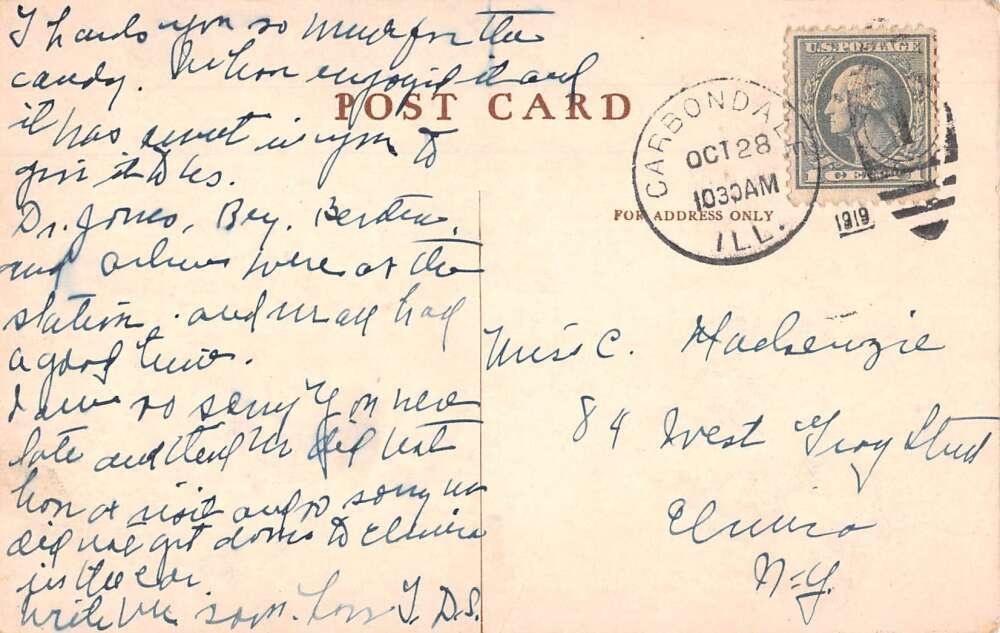 Thank you so much for the
candy. We have enjoyed it and
it was sweet in you to
give it to us.
Dr. Jones, Bey,
and were at the
station. and we all had
a good time.
I am so sorry you were
late and that we did not
have a visit and so sorry we
did not get down to Elmira
in the car
write me soon. Love T. D.S.
POST CARD
FOR ADDRESS ONLY
CARBONDALE
OCT 28
1030AM
ILL.
1919
U.S. POSTAGE
1 1
Miss C. Mackenzie
84 West Gray Street
Elmira
N-Y.